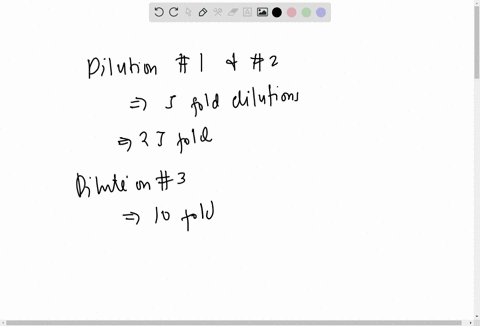 Dilution #1 & #2
⇒ 5 fold dilutions
⇒ 25 fold
Dilution #3
⇒ 10 fold